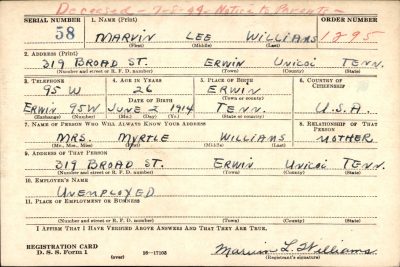 Deceased - 7-8-44 - Notice to Parents -
SERIAL NUMBER 1. NAME (Print) ORDER NUMBER
58 MARVIN LEE WILLIAMS 1295
(First) (Middle) (Last)
2. ADDRESS (Print)
319 BROAD ST. ERWIN UNICOI TENN.
(Number and street or R. F. D. number) (Town) (County) (State)
3. TELEPHONE 4. AGE IN YEARS 5. PLACE OF BIRTH 6. COUNTRY OF CITIZENSHIP
95 W 26 ERWIN
DATE OF BIRTH (Town or county)
ERWIN 95W JUNE 2 1914 TENN. U.S.A.
(Exchange) (Number) (Mo.) (Day) (Yr.) (State or country)
7. NAME OF PERSON WHO WILL ALWAYS KNOW YOUR ADDRESS 8. RELATIONSHIP OF THAT PERSON
MRS. MYRTLE WILLIAMS MOTHER
(Mr., Mrs., Miss) (First) (Middle) (Last)
9. ADDRESS OF THAT PERSON
319 BROAD ST. ERWIN UNICOI TENN.
(Number and street or R. F. D. number) (Town) (County) (State)
10. EMPLOYER'S NAME
UNEMPLOYED
11. PLACE OF EMPLOYMENT OR BUSINESS
(Number and street or R. F. D. number) (Town) (County) (State)
I AFFIRM THAT I HAVE VERIFIED ABOVE ANSWERS AND THAT THEY ARE TRUE.
REGISTRATION CARD
D. S. S. Form 1 (over) 16-17105 Marvin L. Williams
(Registrant's signature)